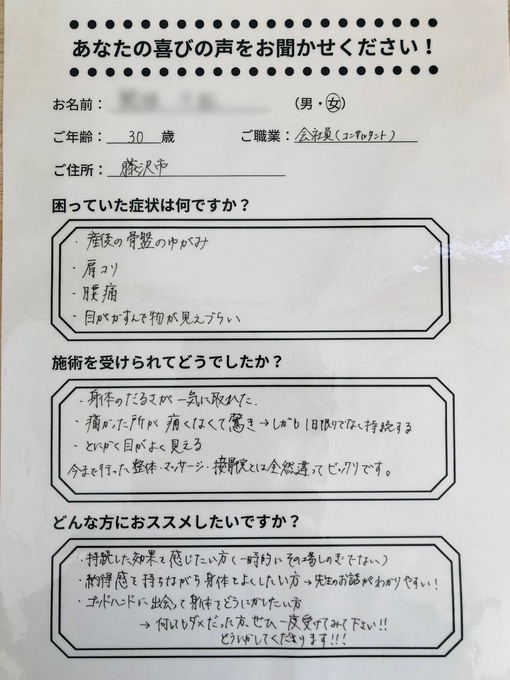 あなたの喜びの声をお聞かせください！
お名前： （男・女）
ご年齢： 30 歳 ご職業： 会社員（コンサルタント）
ご住所： 藤沢市
困っていた症状は何ですか？
・産後の骨盤のゆがみ
・肩コリ
・腰痛
・目がかすんで物が見えづらい
施術を受けられてどうでしたか？
・身体のだるさが一気に取れた．
・痛かった所が痛くなくて驚き→しかも1日限りでなく持続する
・とにかく目がよく見える
今まで行った整体・マッサージ・接骨院とは全然違ってビックリです。
どんな方におススメしたいですか？
・持続した効果を感じたい方（一時的にその場しのぎでない）
・納得感を持ちながら身体をよくしたい方→先生のお話がわかりやすい！
・ゴッドハンドに出会って身体をどうにかしたい方
→何してもダメだった方、ぜひ一度受けてみて下さい！！
どうにかしてくださります！！！